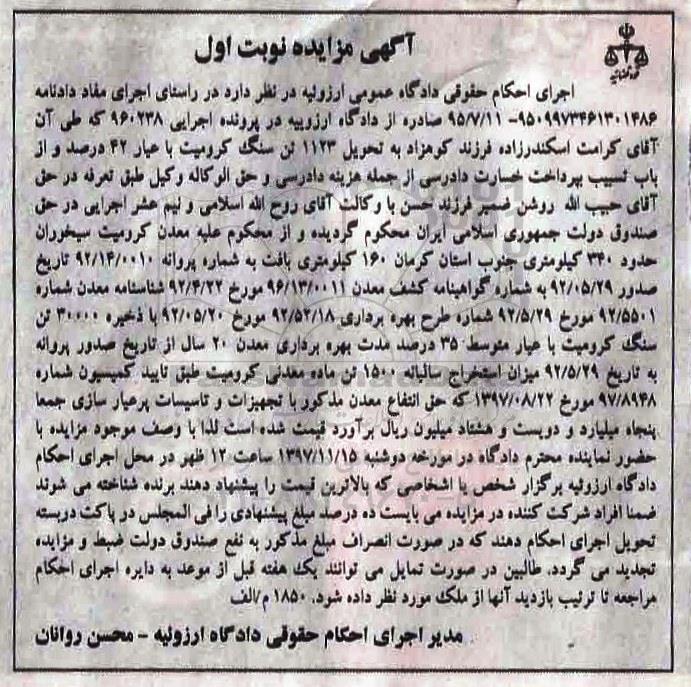 آگهی مزایده نوبت اول
اجرای احکام حقوقی دادگاه عمومی ارزوئیه در نظر دارد در راستای اجرای مفاد دادنامه
۹۵۰۹۹۷۳۴۶۱۳۰۱۴۸۶- ۹۵/۷/۱۱ صادره از دادگاه ارزوییه در پرونده اجرایی ۹۶۰۲۳۸ که طی آن
آقای کرامت اسکندرزاده فرزند کوهزاد به تحویل ۱۱۲۳ تن سنگ کرومیت با عیار ۴۲ درصد و از
باب تسبیب بپرداخت خسارت دادرسی از جمله هزینه دادرسی و حق الوکاله وکیل طبق تعرفه در حق
آقای حبیب الله روشن ضمیر فرزند حسن با وکالت آقای روح الله اسلامی و نیم عشر اجرایی در حق
صندوق دولت جمهوری اسلامی ایران محکوم گردیده و از محکوم علیه معدن کرومیت سیخوران
حدود ۳۴۰ کیلومتری جنوب استان کرمان ۱۶۰ کیلومتری بافت به شماره پروانه ۹۲/۱۴/۰۰۱۰ تاریخ
صدور ۹۲/۰۵/۲۹ به شماره گواهینامه کشف معدن ۹۶/۱۳/۰۰۱۱ مورخ ۹۲/۴/۲۲ شناسنامه معدن شماره
۹۲/۵۵۰۱ مورخ ۹۲/۵/۲۹ شماره طرح بهره برداری ۹۲/۵۲/۱۸ مورخ ۹۲/۰۵/۲۰ با ذخیره ۳۰۰۰۰ تن
سنگ کرومیت با عیار متوسط ۳۵ درصد مدت بهره برداری معدن ۲۰ سال از تاریخ صدور پروانه
به تاریخ ۹۲/۵/۲۹ میزان استخراج سالیانه ۱۵۰۰ تن ماده معدنی کرومیت طبق تایید کمیسیون شماره
۹۷/۸۹۴۸ مورخ ۱۳۹۷/۰۸/۲۲ که حق انتفاع معدن مذکور با تجهیزات و تاسیسات پرعیار سازی جمعا
پنجاه میلیارد و دویست و هشتاد میلیون ریال برآورد قیمت شده است لذا با وصف موجود مزایده با
حضور نماینده محترم دادگاه در مورخه دوشنبه ۱۳۹۷/۱۱/۱۵ ساعت ۱۲ ظهر در محل اجرای احکام
دادگاه ارزوئیه برگزار شخص یا اشخاصی که بالاترین قیمت را پیشنهاد دهند برنده شناخته می شوند
ضمنا افراد شرکت کننده در مزایده می بایست ده درصد مبلغ پیشنهادی را فی المجلس در پاکت دربسته
تحویل اجرای احکام دهند که در صورت انصراف مبلغ مذکور به نفع صندوق دولت ضبط و مزایده
تجدید می گردد. طالبین در صورت تمایل می توانند یک هفته قبل از موعد به دایره اجرای احکام
مراجعه تا ترتیب بازدید آنها از ملک مورد نظر داده شود. ۱۸۵۰ م/الف
مدیر اجرای احکام حقوقی دادگاه ارزوئیه - محسن روانان